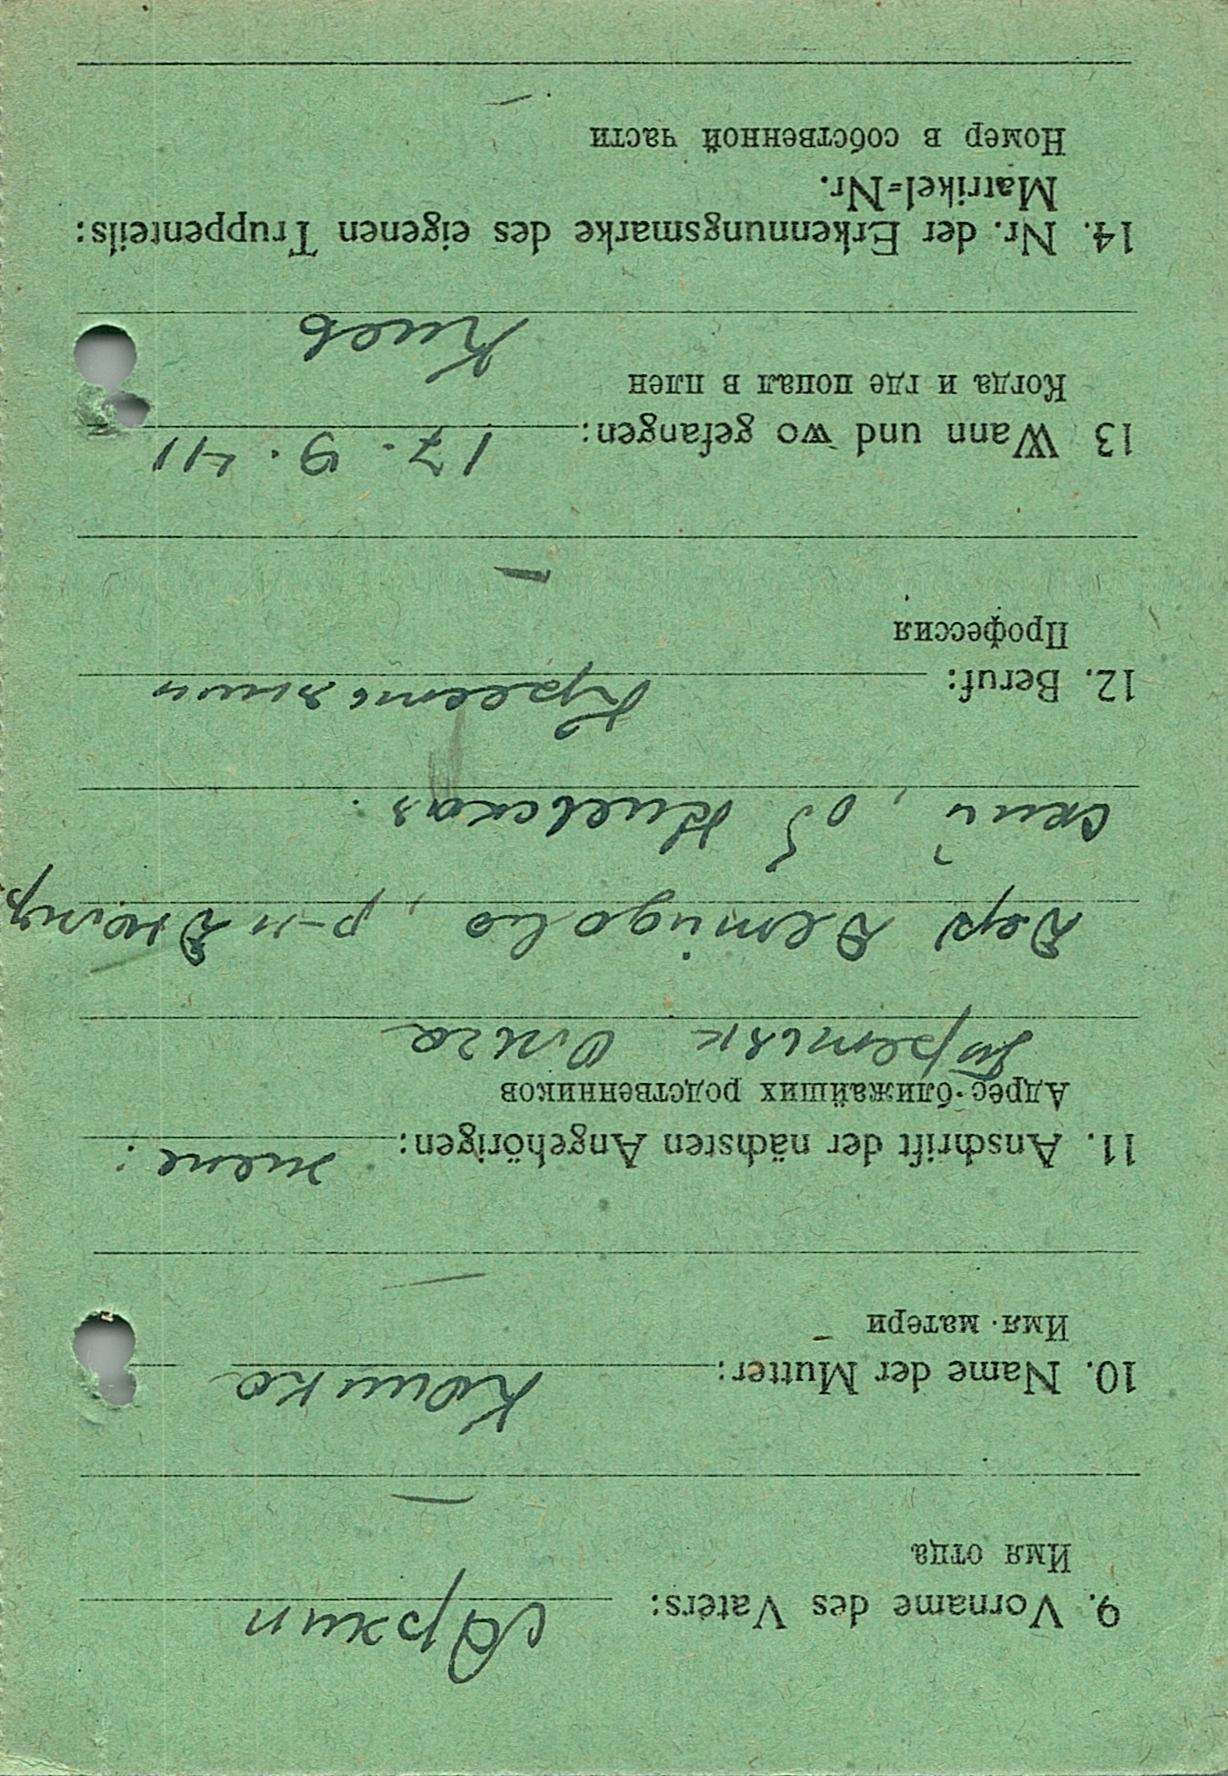 9. Vorname des Vaters: Архип
Имя отца
—
10. Name der Mutter: Кошко
Имя матери
—
11. Anschrift der nächsten Angehörigen: жене:
Адрес ближайших родственников
Ольга
Дер Демидово, р-н Днепр
ский, об Киевская.
12. Beruf: Крестьянин
Профессия
—
13 Wann und wo gefangen: 17. 9. 41
Когда и где попал в плен
Киев
14. Nr. der Erkennungsmarke des eigenen Truppenteils:
Matrikel-Nr.
Номер в собственной части
—